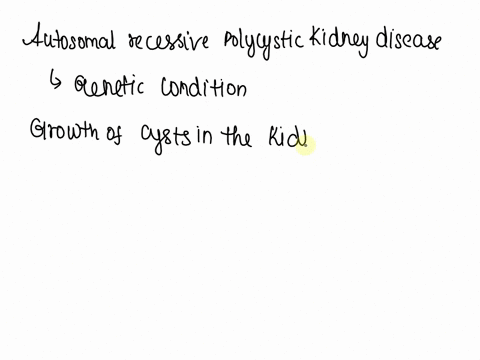 Autosomal recessive Polycystic Kidney disease
↳ Genetic condition
Growth of cysts in the Kid